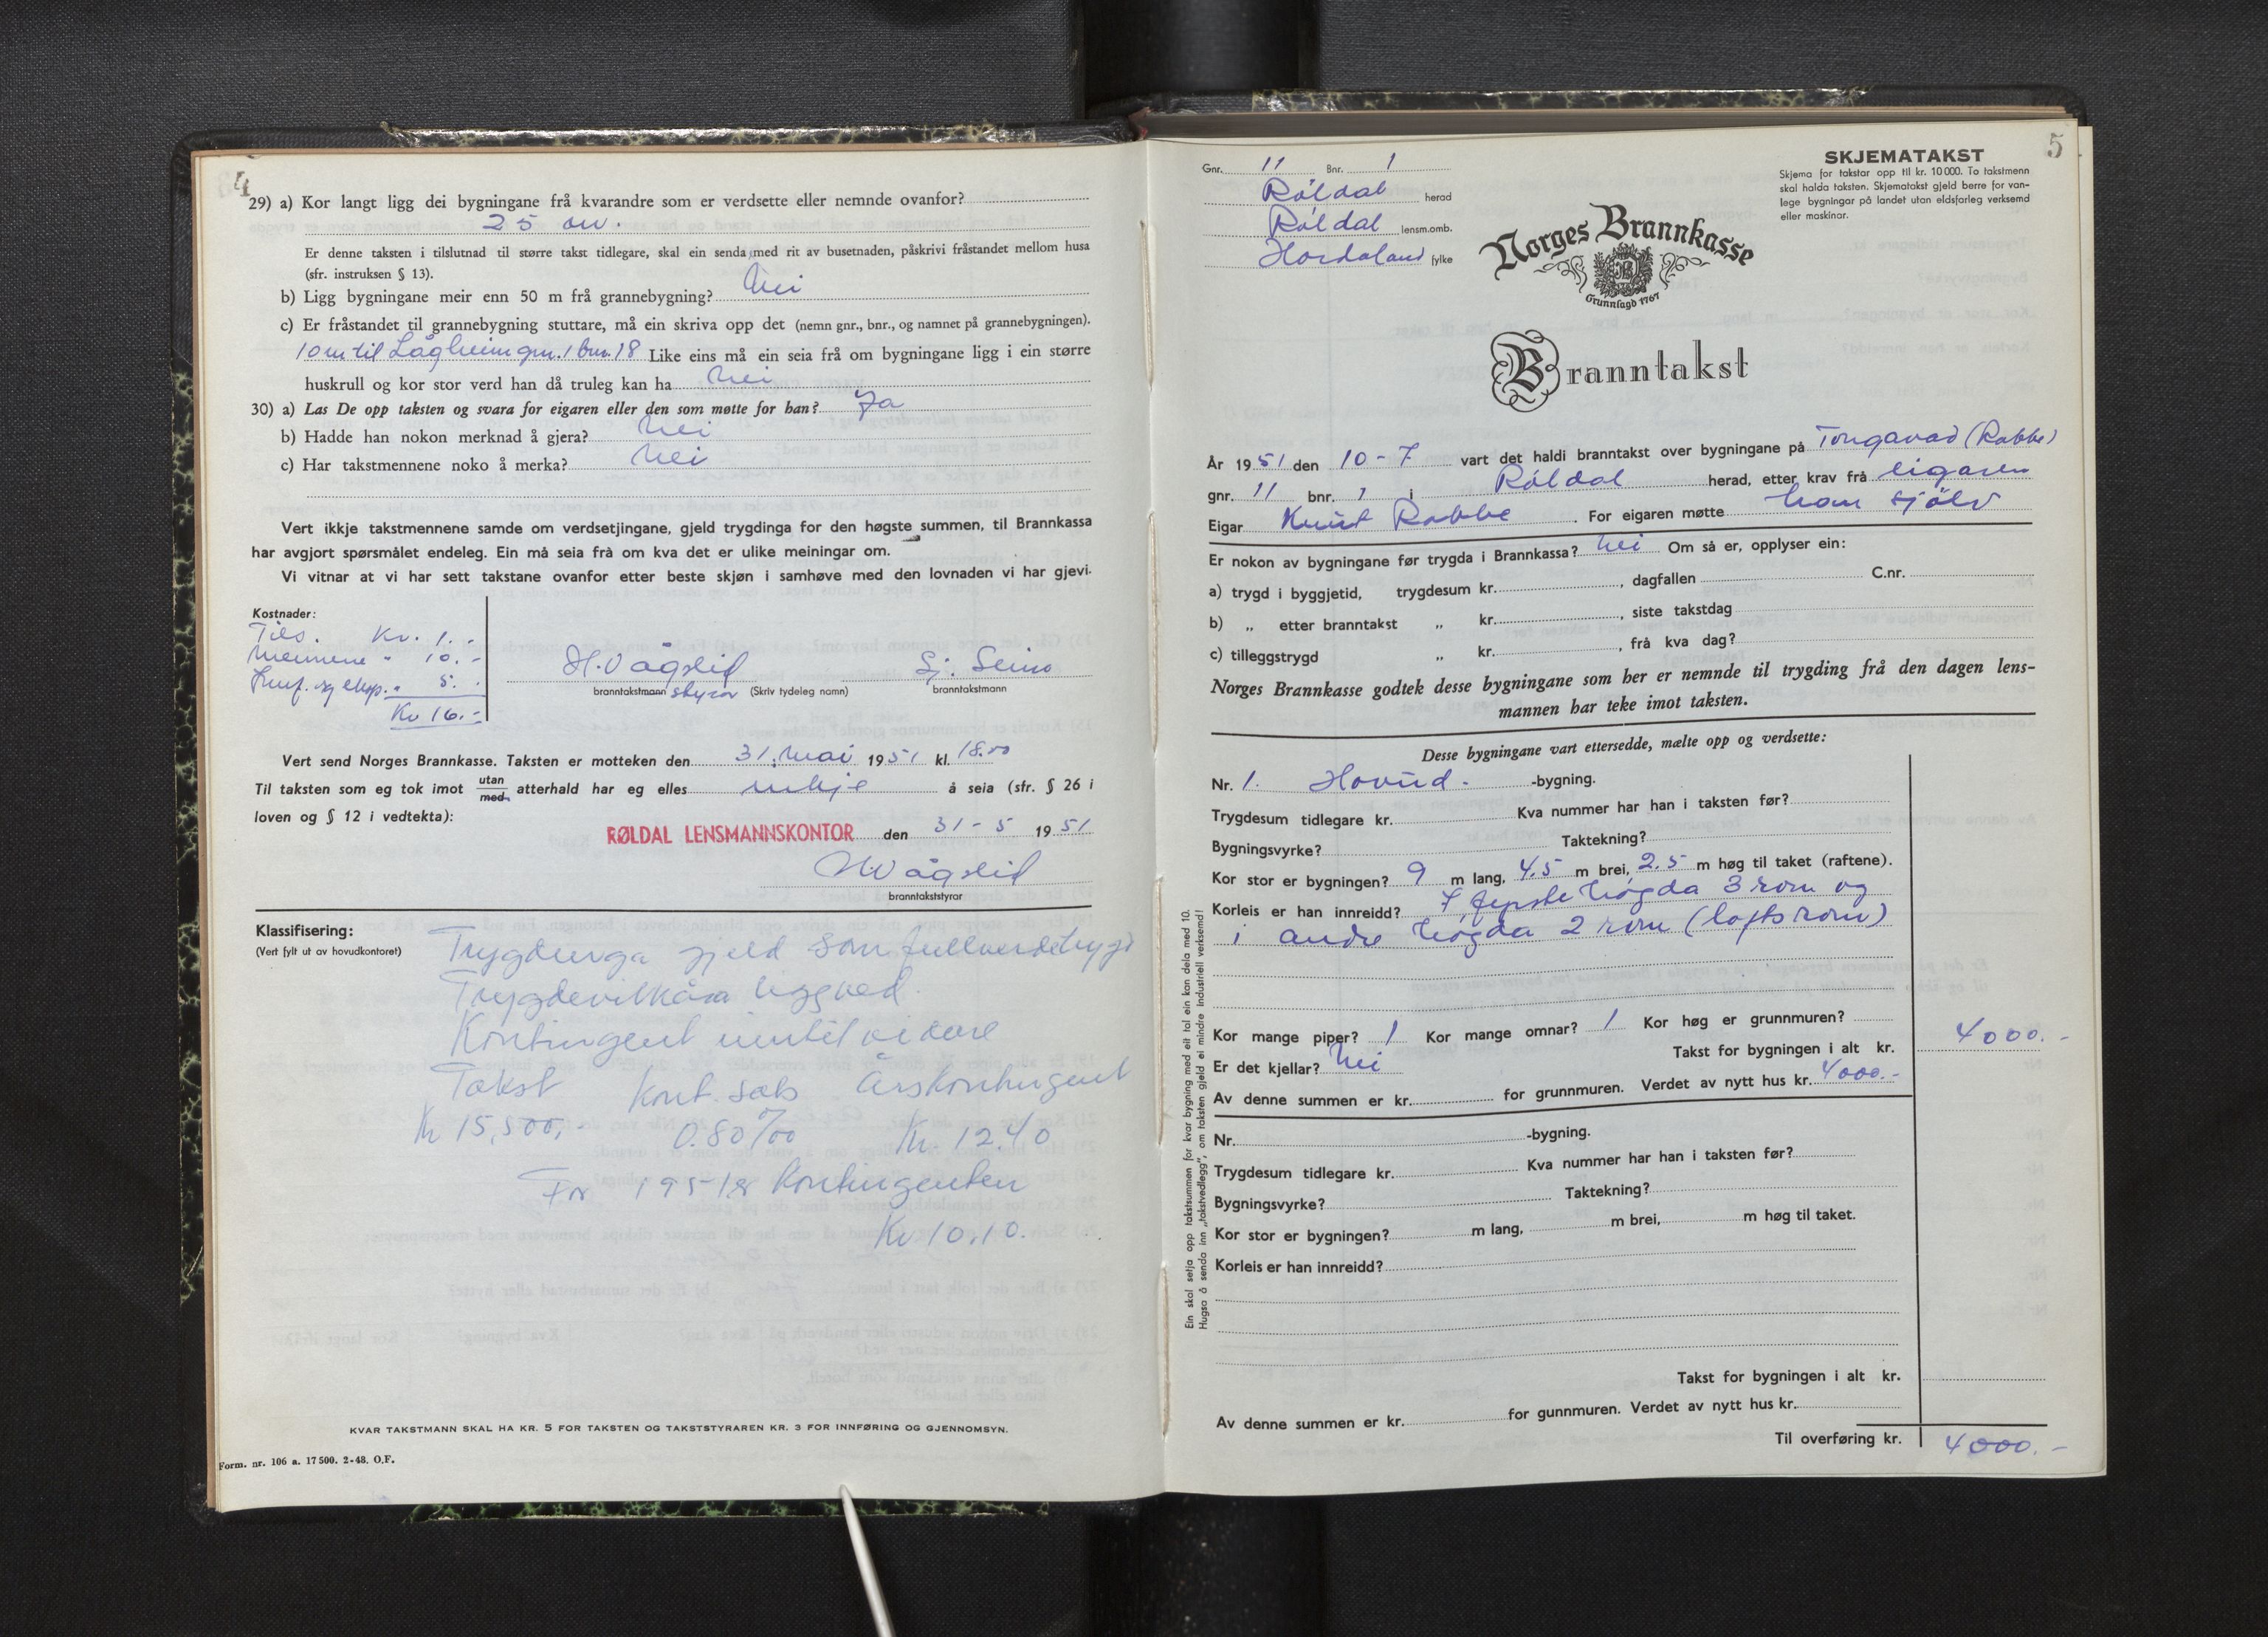 4
29) a) Kor langt ligg dei bygningane frå kvarandre som er verdsette eller nemnde ovanfor?
25 m.
Er denne taksten i tilslutnad til større takst tidlegare, skal ein senda med rit av busetnaden, påskrivi fråstandet mellom husa
(sfr. instruksen § 13).
b) Ligg bygningane meir enn 50 m frå grannebygning? Nei
c) Er fråstandet til grannebygning stuttare, må ein skriva opp det (nemn gnr., bnr., og namnet på grannebygningen).
10 m til Lågheim gnr. 1 bnr. 18 Like eins må ein seia frå om bygningane ligg i ein større
huskrull og kor stor verd han då truleg kan ha Nei
30) a) Las De opp taksten og svara for eigaren eller den som møtte for han? Ja
b) Hadde han nokon merknad å gjera? Nei
c) Har takstmennene noko å merka? Nei
Vert ikkje takstmennene samde om verdsetjingane, gjeld trygdinga for den høgste summen, til Brannkassa
har avgjort spørsmålet endeleg. Ein må seia frå om kva det er ulike meiningar om.
Vi vitnar at vi har sett takstane ovanfor etter beste skjøn i samhøve med den lovnaden vi har gjevi.
Kostnader:
Tils. Kr. 1.-
Mennene " 10.-
Innf. og eksp. " 5.-
Kr 16.-
H. Vågslid
branntakstmann styrar (Skriv tydeleg namn)
Sj. Seim
branntakstmann
Vert send Norges Brannkasse. Taksten er motteken den 31. mai 1951 kl. 18.00
Til taksten som eg tok imot utan med atterhald har eg elles inkje å seia (sfr. § 26 i
loven og § 12 i vedtekta):
RØLDAL LENSMANNSKONTOR den 31-5 1951
H. Vågslid
branntakststyrar
Klassifisering:
(Vert fylt ut av hovudkontoret)
Trygdinga gjeld som fullverdetrygd
Trygdevilkåra legg ved.
Kontingent inntil vidare
Takst Kont. sats Årskontingent
Kr 15,500,- 0.80‰ Kr. 12.40
For 1951 er kontingenten
Kr 10.10.
KVAR TAKSTMANN SKAL HA KR. 5 FOR TAKSTEN OG TAKSTSTYRAREN KR. 3 FOR INNFØRING OG GJENNOMSYN.
Form. nr. 106 a. 17500. 2-48. O.F.
5
Gnr. 11 Bnr. 1
Røldal herad
Røldal lensm.omb.
Hordaland fylke
SKJEMATAKST
Skjema for takstar opp til kr. 10000. To takstmenn
skal halda taksten. Skjematakst gjeld berre for van-
lege bygningar på landet utan eldsfarleg verksemd
eller maskinar.
Norges Brannkasse
Grunnlagd 1767
Branntakst
År 1951 den 10-7 vart det haldi branntakst over bygningane på Tongavad (Rabbe)
gnr. 11 bnr. 1 i Røldal herad, etter krav frå eigaren
Eigar Knut Rabbe. For eigaren møtte han sjölv
Er nokon av bygningane før trygda i Brannkassa? Nei Om så er, opplyser ein:
a) trygd i byggjetid, trygdesum kr. , dagfallen C.nr.
b) „ etter branntakst „ kr. , siste takstdag
c) tilleggstrygd „ kr. , frå kva dag?
Norges Brannkasse godtek desse bygningane som her er nemnde til trygding frå den dagen lens-
mannen har teke imot taksten.
Desse bygningane vart ettersedde, mælte opp og verdsette:
Nr. 1. Hovud- -bygning.
Trygdesum tidlegare kr. Kva nummer har han i taksten før?
Bygningsvyrke? Taktekning?
Kor stor er bygningen? 9 m lang, 4,5 m brei, 2,5 m høg til taket (raftene).
Korleis er han innreidd? I fyrste högda 3 rom og
i andre högda 2 rom (loftsrom)
Kor mange piper? 1 Kor mange omnar? 1 Kor høg er grunnmuren?
Er det kjellar? Nei Takst for bygningen i alt kr. 4000.-
Av denne summen er kr. for grunnmuren. Verdet av nytt hus kr. 4000.-
Nr. -bygning.
Trygdesum tidlegare kr. Kva nummer har han i taksten før?
Bygningsvyrke? Taktekning?
Kor stor er bygningen? m lang, m brei, m høg til taket.
Korleis er han innreidd?
Takst for bygningen i alt kr.
Av denne summen er kr. for gunnmuren. Verdet av nytt hus kr.
Til overføring kr. 4000.-
Ein skal setja opp takstsummen for kvar bygning med eit tal ein kan dela med 10.
Hugsa å senda inn „takstvedlegg", om taksten gjeld ei mindre industriell verksemd!